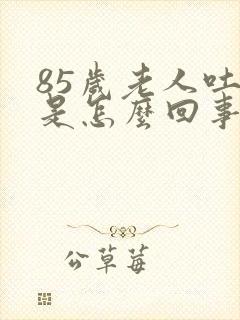 85歲老人吐
是怎麼回事
公草莓